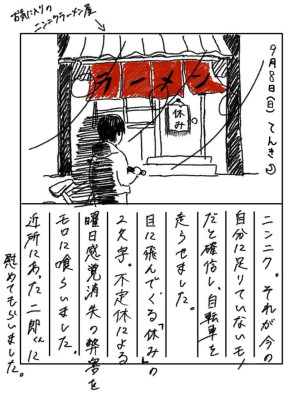 お気に入りの
ニンニクラーメン屋
9月8日(日) てんき
ラーメン
休み
ニンニク。それが今の
自分に足りていないモノ
だと確信し、自転車を
走らせました。
目に飛んでくる「休み」の
2文字。不定休による
曜日感覚消失の弊害を
モロに喰らいました。
近所にあった二郎くんに
慰めてもらいました。